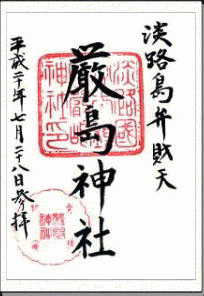 淡路島弁財天
厳島神社
平成二十年七月二十八日参拝